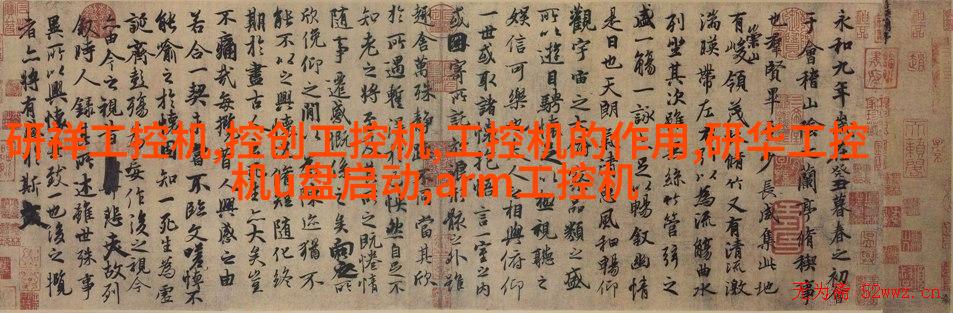 永和九年癸丑暮春之初會
于會稽山蘭亭脩稧事
也群賢畢少長咸集此地
有崇山峻領茂脩竹又有清流激
湍暎帶左以為流觴曲水
列坐其次雖絲竹管弦之
盛一觴一詠足以暢敘幽情
是日也天朗清風和暢仰
觀宇宙之品類之盛
所以遊目騁極視聽之
娛信可樂人相與俯仰
一世或取諸言一室之內
或因寄所骸之外雖
趣舍萬殊靜當其欣
於所遇暫怏然自足不
知老之將至之既惓情
隨事遷感慨係之矣向之所
欣俛仰之閒陳迹猶不
能不以之興脩短隨化終
期於盡古人生亦大矣豈
不痛哉每攬人興感之由
若合一契不臨文嗟悼不
能喻之於懷知一死生為虛
誕齊彭殤妄作後之視今
由今之視悲夫故列
敘時人錄所述雖世殊事
異所以興懷致一也後之攬
者亦將有斯文
研祥工控机,控创工控机,工控机的作用,研华工控
机u盘启动,arm工控机
无为斋 52wwz.cn